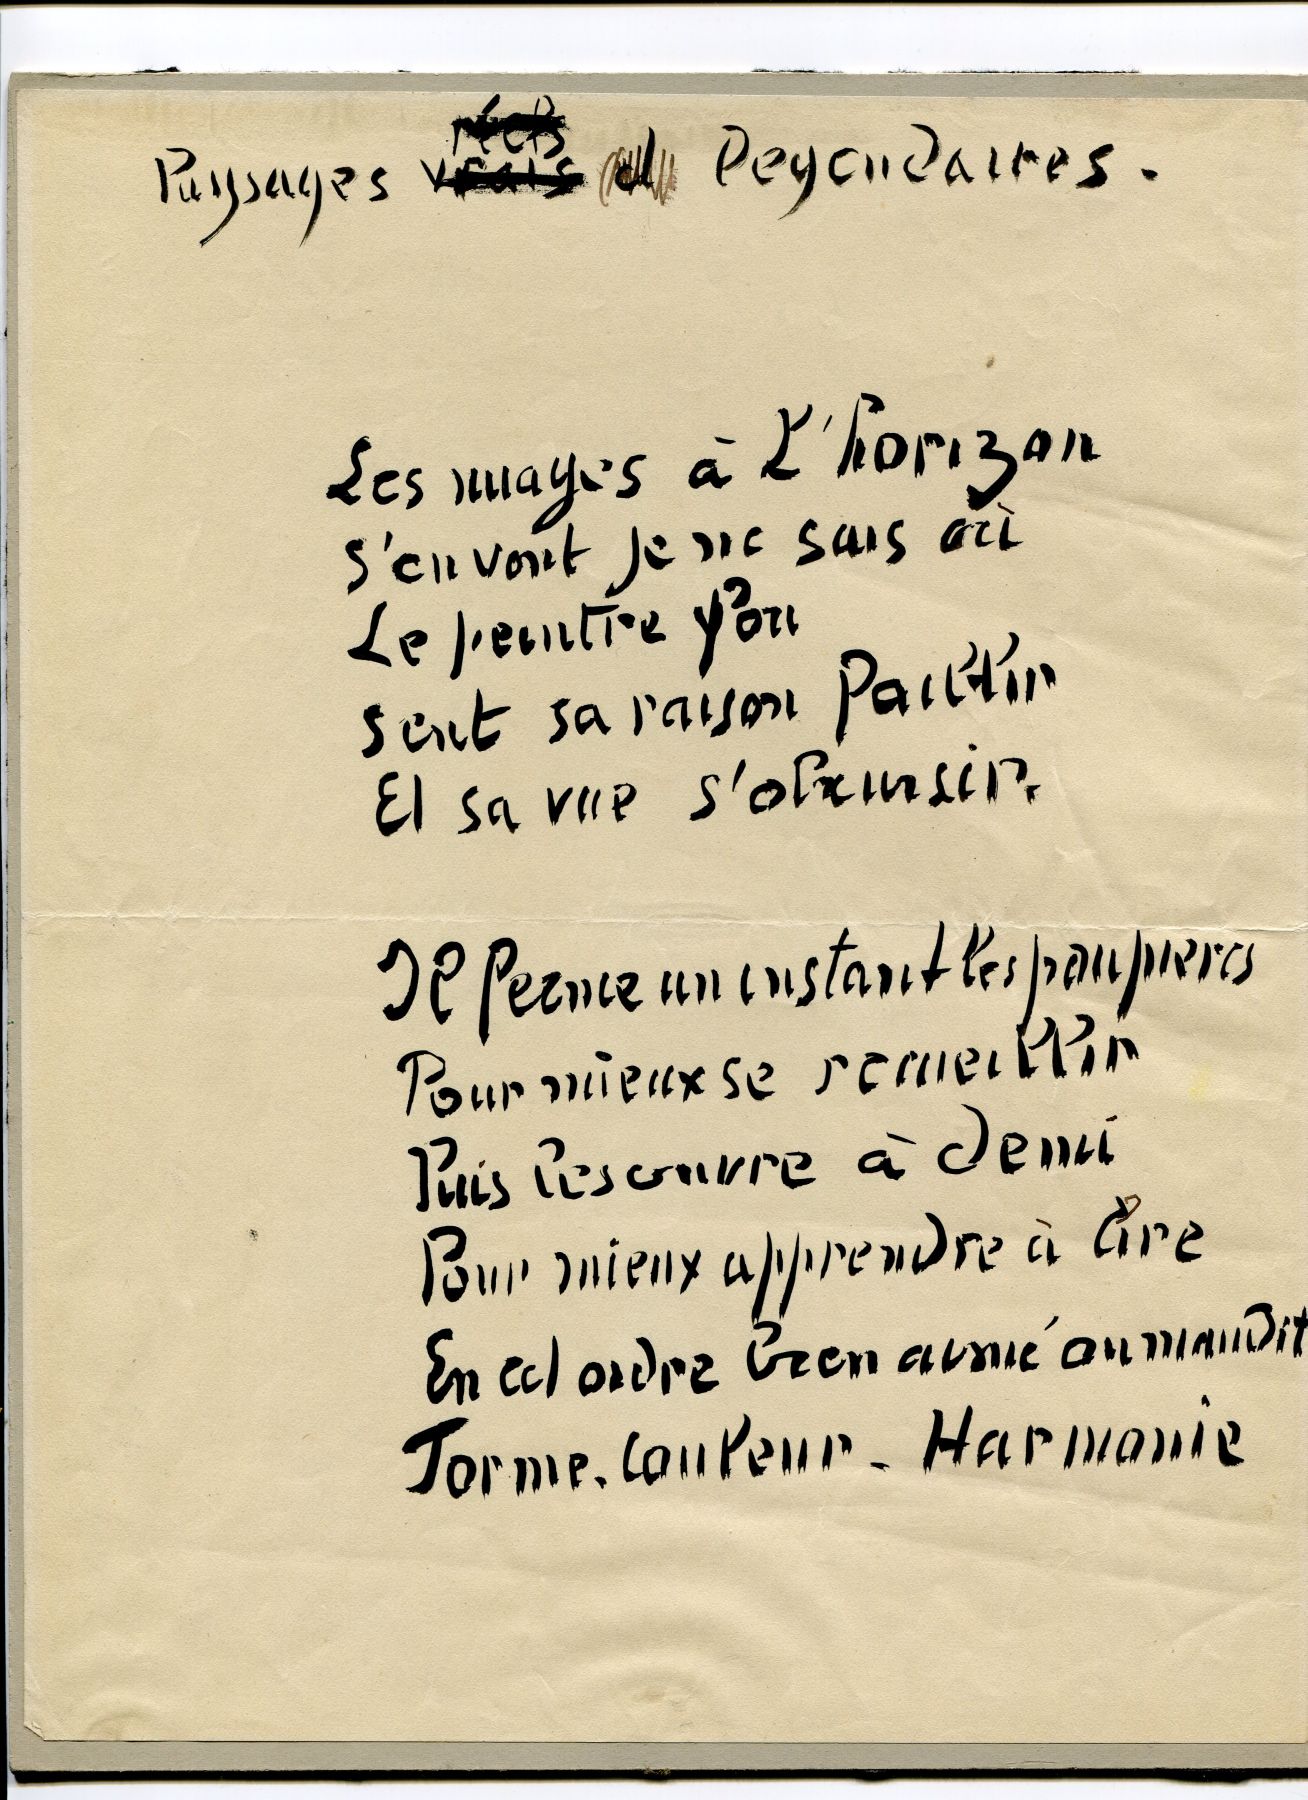 réels
Paysages vrais Legendaires.
Les nuages à L'horizon
s'en vont je ne sais où
Le peintre fou
sent sa raison faillir
Et sa vue s'obscursir.
Il ferme un instant les paupieres
Pour mieux se recueillir
Puis les ouvre à demi
Pour mieux apprendre à lire
En cet ordre bien aimé ou maudit
Forme. Couleur - Harmonie